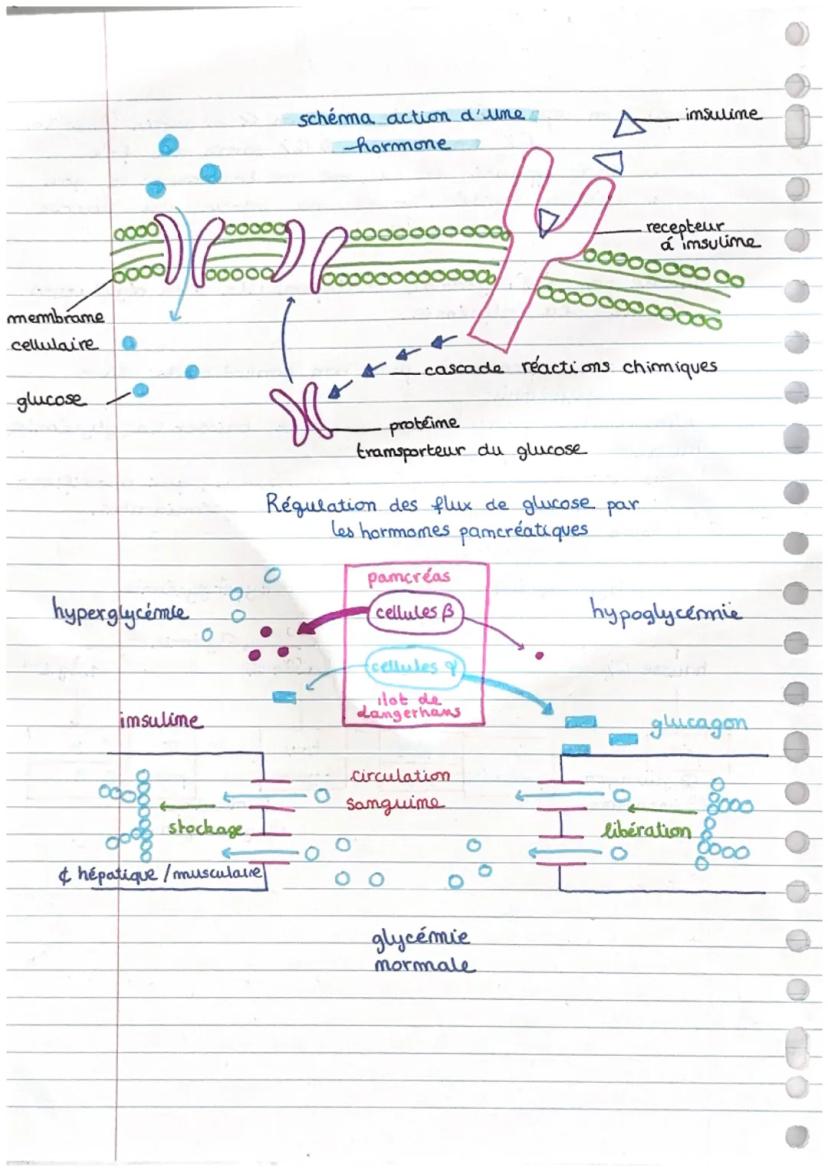 schéma action d'une
hormone
insuline
recepteur
à insuline
membrane
cellulaire
glucose
cascade réactions chimiques
protéine
transporteur du glucose
Régulation des flux de glucose par
les hormones pancréatiques
hyperglycémie
pancréas
cellules β
hypoglycémie
cellules φ
ilot de
langerhans
insuline
glucagon
circulation
sanguine
stockage
libération
¢ hépatique / musculaire
glycémie
normale